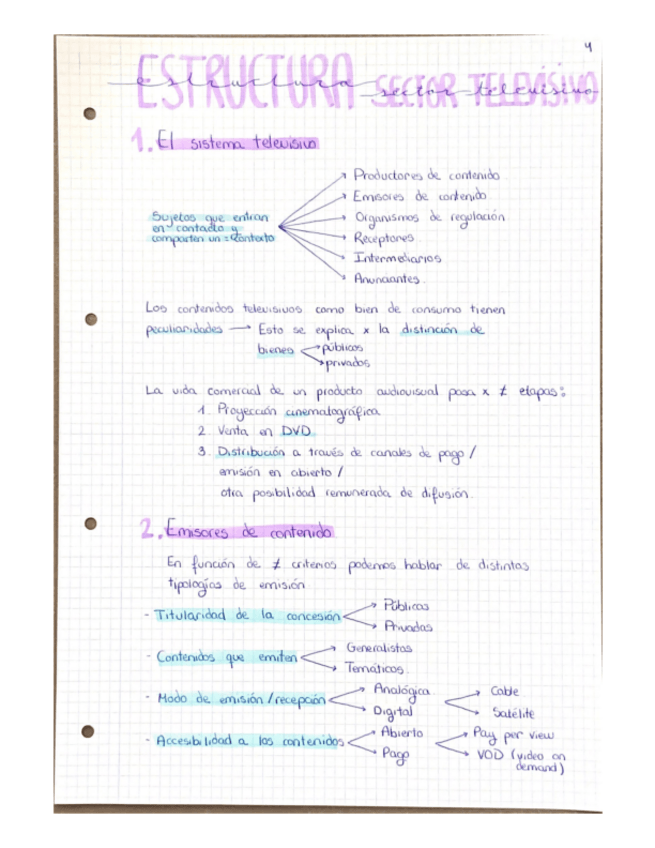 4
ESTRUCTURA SECTOR TELEVISIVO
estructura sector televisivo
1. El sistema televisivo
Sujetos que entran
en contacto y
comparten un = contexto
Productores de contenido
Emisores de contenido
Organismos de regulación
Receptores.
Intermediarios
Anunciantes.
Los contenidos televisivos como bien de consumo tienen
peculiaridades → Esto se explica x la distinción de
bienes
públicos
privados
La vida comercial de un producto audiovisual pasa x ≠ etapas:
1. Proyección cinematográfica
2. Venta en DVD
3. Distribución a través de canales de pago /
emisión en abierto /
otra posibilidad remunerada de difusión.
2. Emisores de contenido
En función de ≠ criterios podemos hablar de distintas
tipologías de emisión
- Titularidad de la concesión
Públicas
Privadas
- Contenidos que emiten
Generalistas
Temáticos.
- Modo de emisión/recepción
Analógica
Digital
Cable
Satélite
- Accesibilidad a los contenidos
Abierto
Pago
Pay per view
VOD (video on
demand)